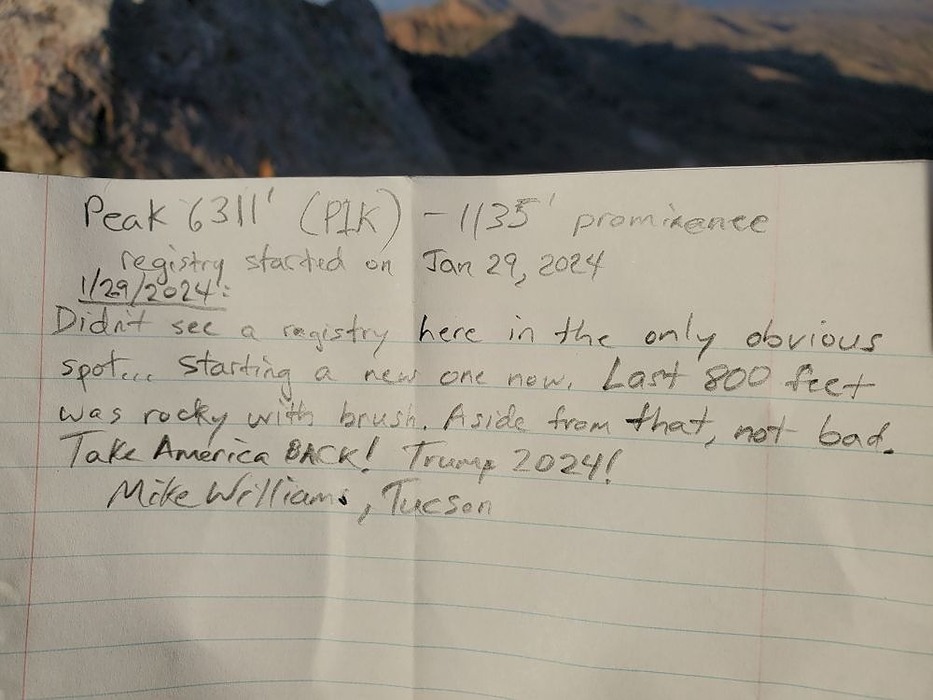 Peak 6311' (P1K) - 1135' prominence
registry started on Jan 29, 2024
1/29/2024:
Didn't see a registry here in the only obvious
spot... starting a new one now. Last 800 feet
was rocky with brush. Aside from that, not bad.
Take America BACK! Trump 2024!
Mike Williams, Tucson